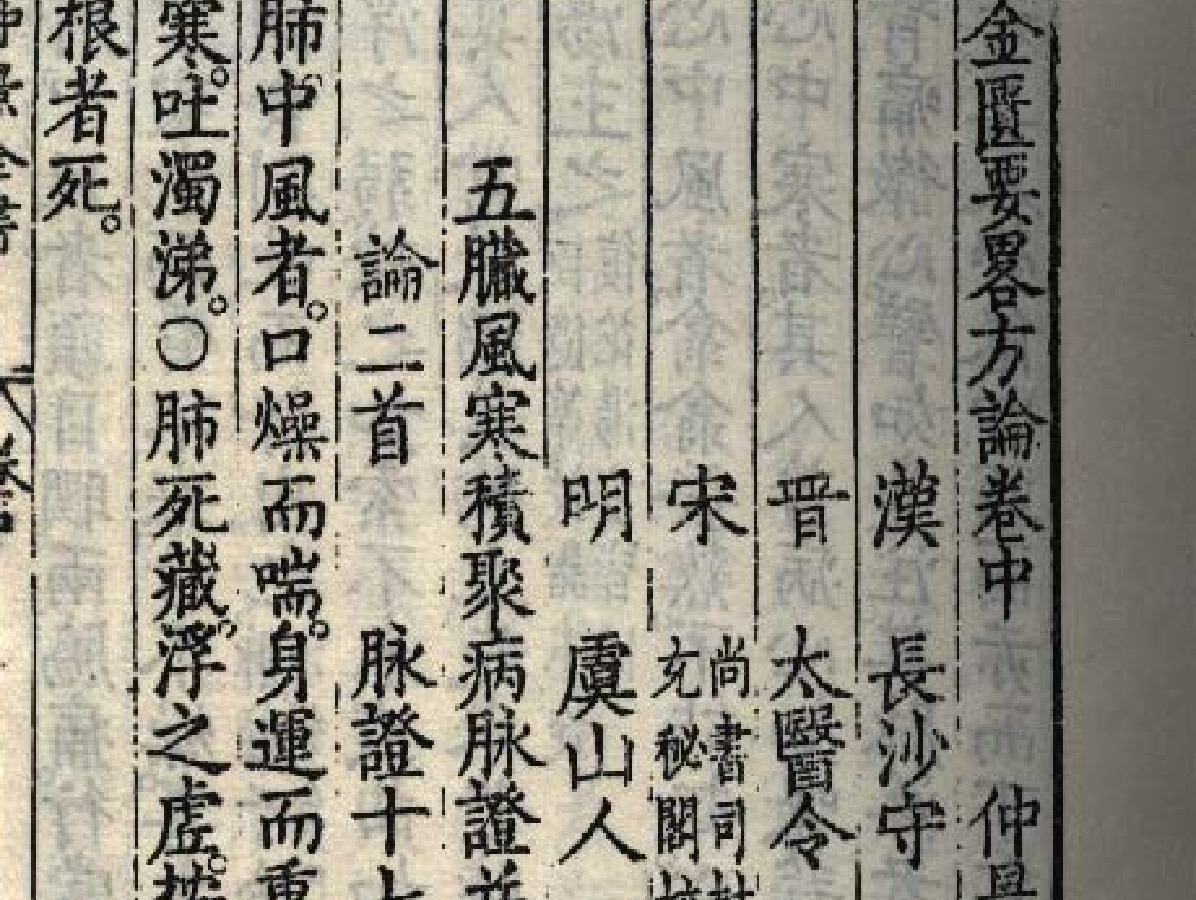 金匱要畧方論卷中 仲景
漢 長沙守
晋 太醫令
宋 尚書司封 充秘閣校
明 虞山人
五臟風寒積聚病脉證并
論二首 脉證十七
肺中風者。口燥而喘。身運而重
寒。吐濁涕。〇肺死藏。浮之虛。按
根者死。
仲景全書